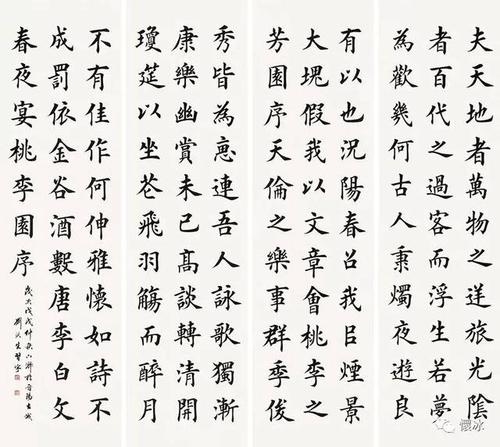 夫天地者萬物之逆旅光陰
者百代之過客而浮生若夢
為歡幾何古人秉燭夜遊良
有以也況陽春召我以煙景
大塊假我以文章會桃李之
芳園序天倫之樂事群季俊
秀皆為惠連吾人詠歌獨慚
康樂幽賞未已高談轉清開
瓊筵以坐花飛羽觴而醉月
不有佳作何伸雅懷如詩不
成罰依金谷酒數唐李白文
春夜宴桃李園序
歲次戊戌仲秋於晉陽古城
懷冰